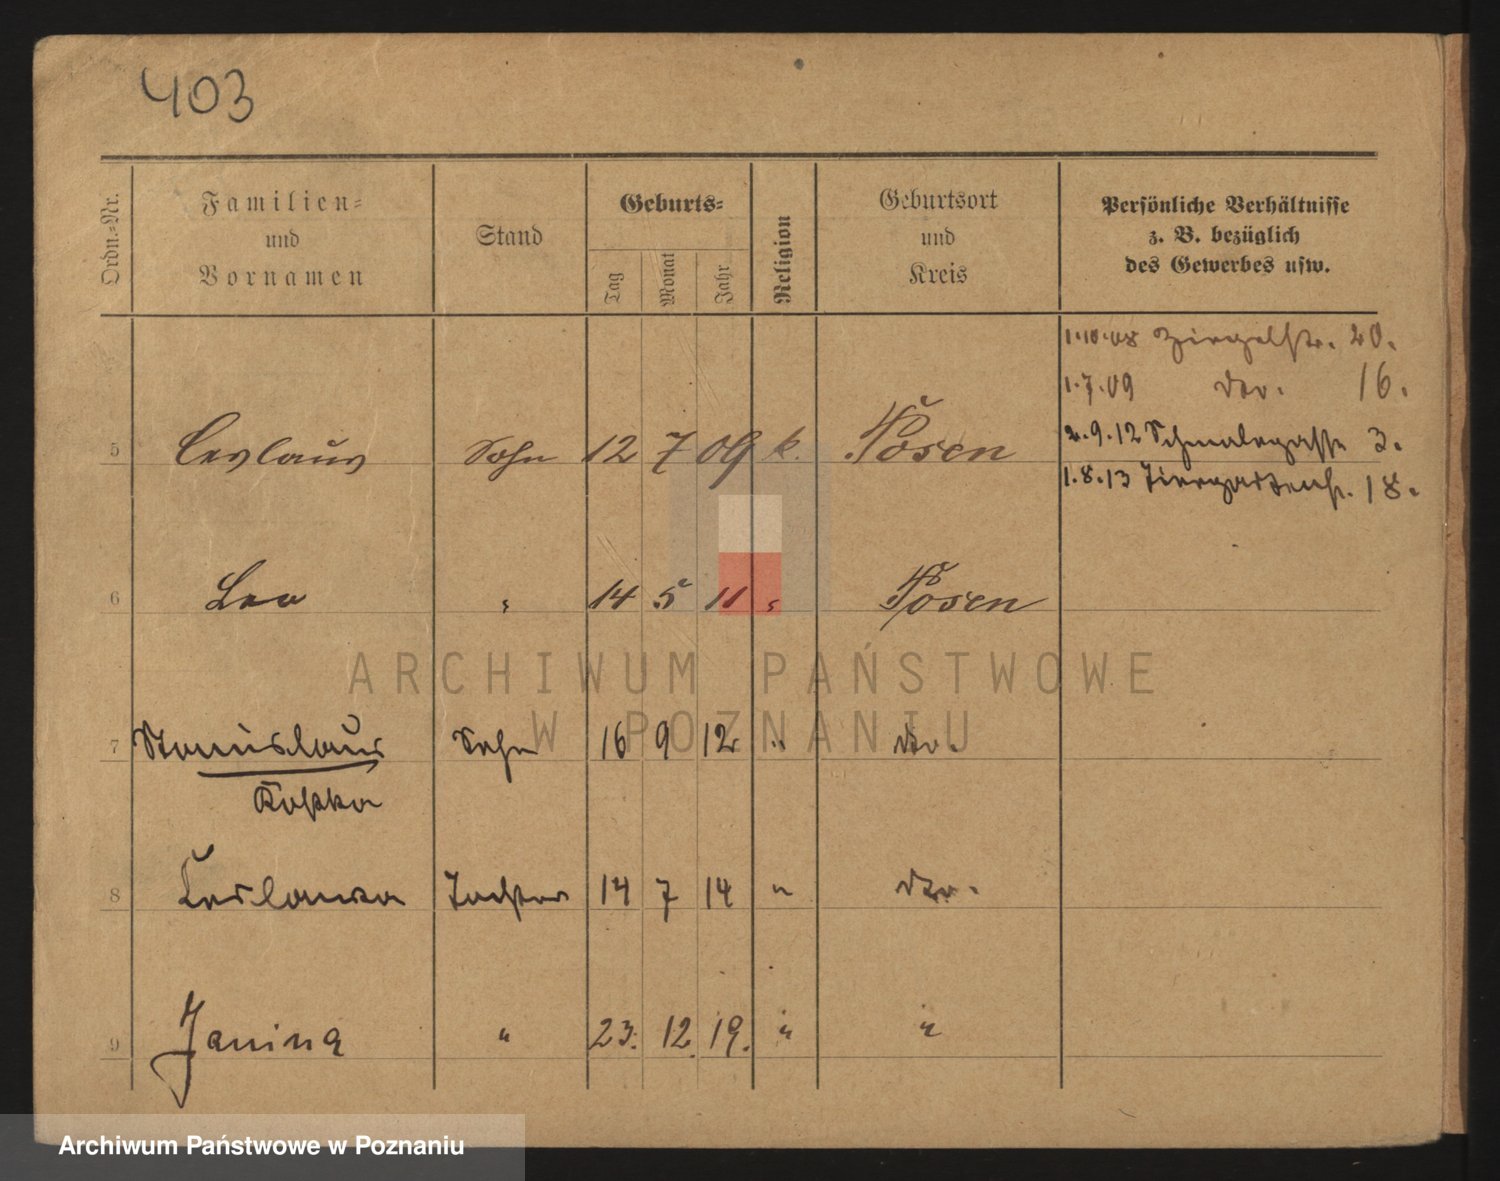 403
Ordn.-Nr.
Familien-
und
Vornamen
Stand
Geburts-
Tag
Monat
Jahr
Religion
Geburtsort
und
Kreis
Persönliche Verhältnisse
z. B. bezüglich
des Gewerbes usw.
1.10.08 Ziegelstr. 20.
1.7.09 do. 16.
2.9.12 Schmalegasse 3.
5 Ceslaus Sohn 12 7 09 k. Posen
1.8.13 Tiergartenstr. 18.
6 Leo " 14 5 11 " Posen
ARCHIWUM PAŃSTWOWE
W POZNANIU
7 Stanislaus Sohn 16 9 12 " dto.
Kostka
8 Ceslawa Tochter 14 7 14 " dto.
9 Janina " 23. 12. 19. " "
Archiwum Państwowe w Poznaniu